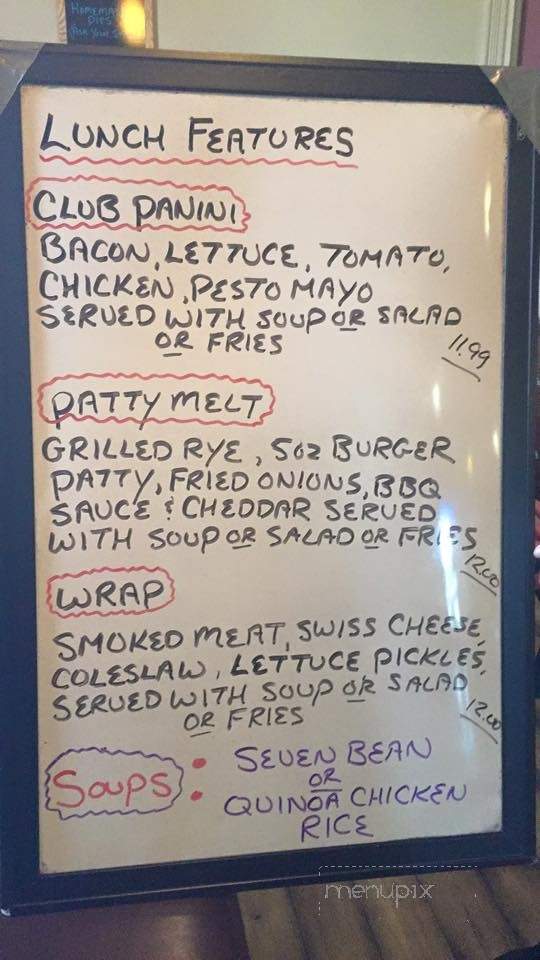 HOMEMADE
PIES
LUNCH FEATURES
CLUB PANINI
BACON, LETTUCE, TOMATO,
CHICKEN, PESTO MAYO
SERVED WITH SOUP OR SALAD
OR FRIES
11.99
PATTY MELT
GRILLED RYE, 5oz BURGER
PATTY, FRIED ONIONS, BBQ
SAUCE & CHEDDAR SERVED
WITH SOUP OR SALAD OR FRIES
12.00
WRAP
SMOKED MEAT, SWISS CHEESE,
COLESLAW, LETTUCE PICKLES,
SERVED WITH SOUP OR SALAD
OR FRIES
12.00
SOUPS: SEVEN BEAN
OR
QUINOA CHICKEN
RICE
menupix